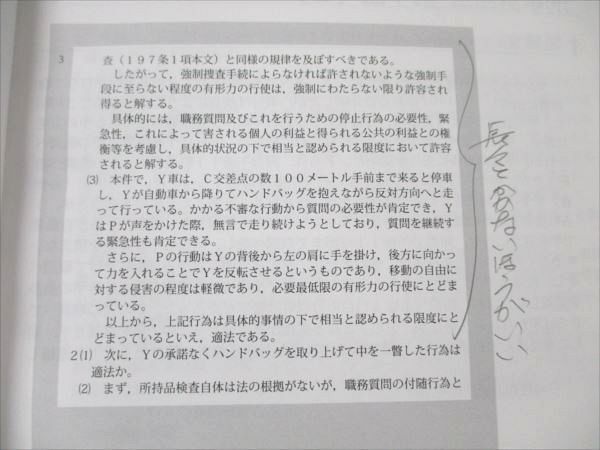 3
査（197条1項本文）と同様の規律を及ぼすべきである。
したがって，強制捜査手続によらなければ許されないような強制手
段に至らない程度の有形力の行使は，強制にわたらない限り許容され
得ると解する。
具体的には，職務質問及びこれを行うための停止行為の必要性，緊
急性，これによって害される個人の利益と得られる公共の利益との権
衡等を考慮し，具体的状況の下で相当と認められる限度において許容
されると解する。
(3) 本件で，Y車は，C交差点の数100メートル手前まで来ると停車
し，Yが自動車から降りてハンドバッグを抱えながら反対方向へと走
って行っている。かかる不審な行動から質問の必要性が肯定でき，Y
はPが声をかけた際，無言で走り続けようとしており，質問を継続す
る緊急性も肯定できる。
さらに，Pの行動はYの背後から左の肩に手を掛け，後方に向かっ
て力を入れることでYを反転させるというものであり，移動の自由に
対する侵害の程度は軽微であり，必要最低限の有形力の行使にとどま
っている。
以上から，上記行為は具体的事情の下で相当と認められる限度にと
どまっているといえ，適法である。
2(1) 次に，Yの承諾なくハンドバッグを取り上げて中を一瞥した行為は
適法か。
(2) まず，所持品検査自体は法の根拠がないが，職務質問の付随行為と
長々とかかないほうがいい